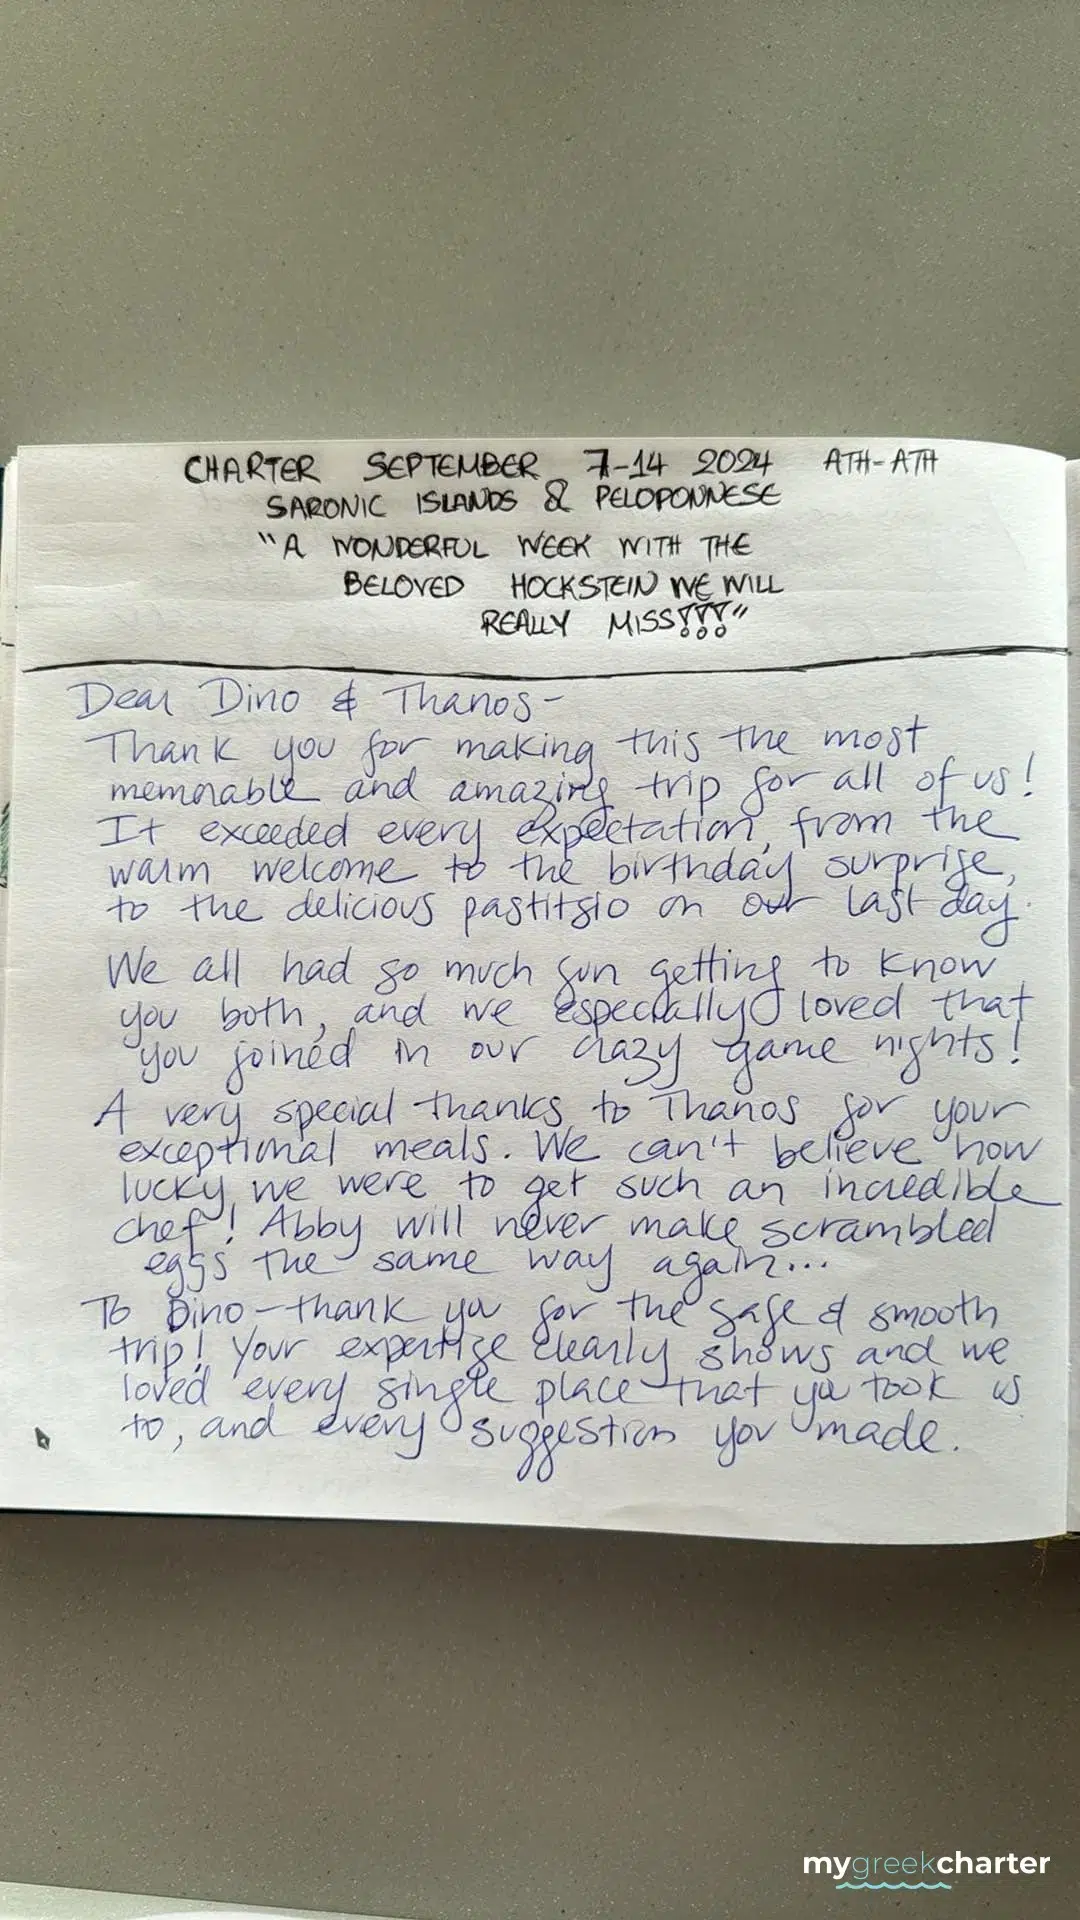 CHARTER SEPTEMBER 7-14 2024 ATH-ATH
SARONIC ISLANDS & PELOPONNESE
"A WONDERFUL WEEK WITH THE
BELOVED HOCKSTEIN WE WILL
REALLY MISS!!!"
Dear Dino & Thanos-
Thank you for making this the most
memorable and amazing trip for all of us!
It exceeded every expectation, from the
warm welcome to the birthday surprise,
to the delicious pastitsio on our last day.
We all had so much fun getting to know
you both, and we especially loved that
you joined in our crazy game nights!
A very special thanks to Thanos for your
exceptional meals. We can't believe how
lucky we were to get such an incredible
chef! Abby will never make scrambled
eggs the same way again...
To Dino-thank you for the safe & smooth
trip! Your expertise clearly shows and we
loved every single place that you took us
to, and every suggestion you made.
mygreekcharter